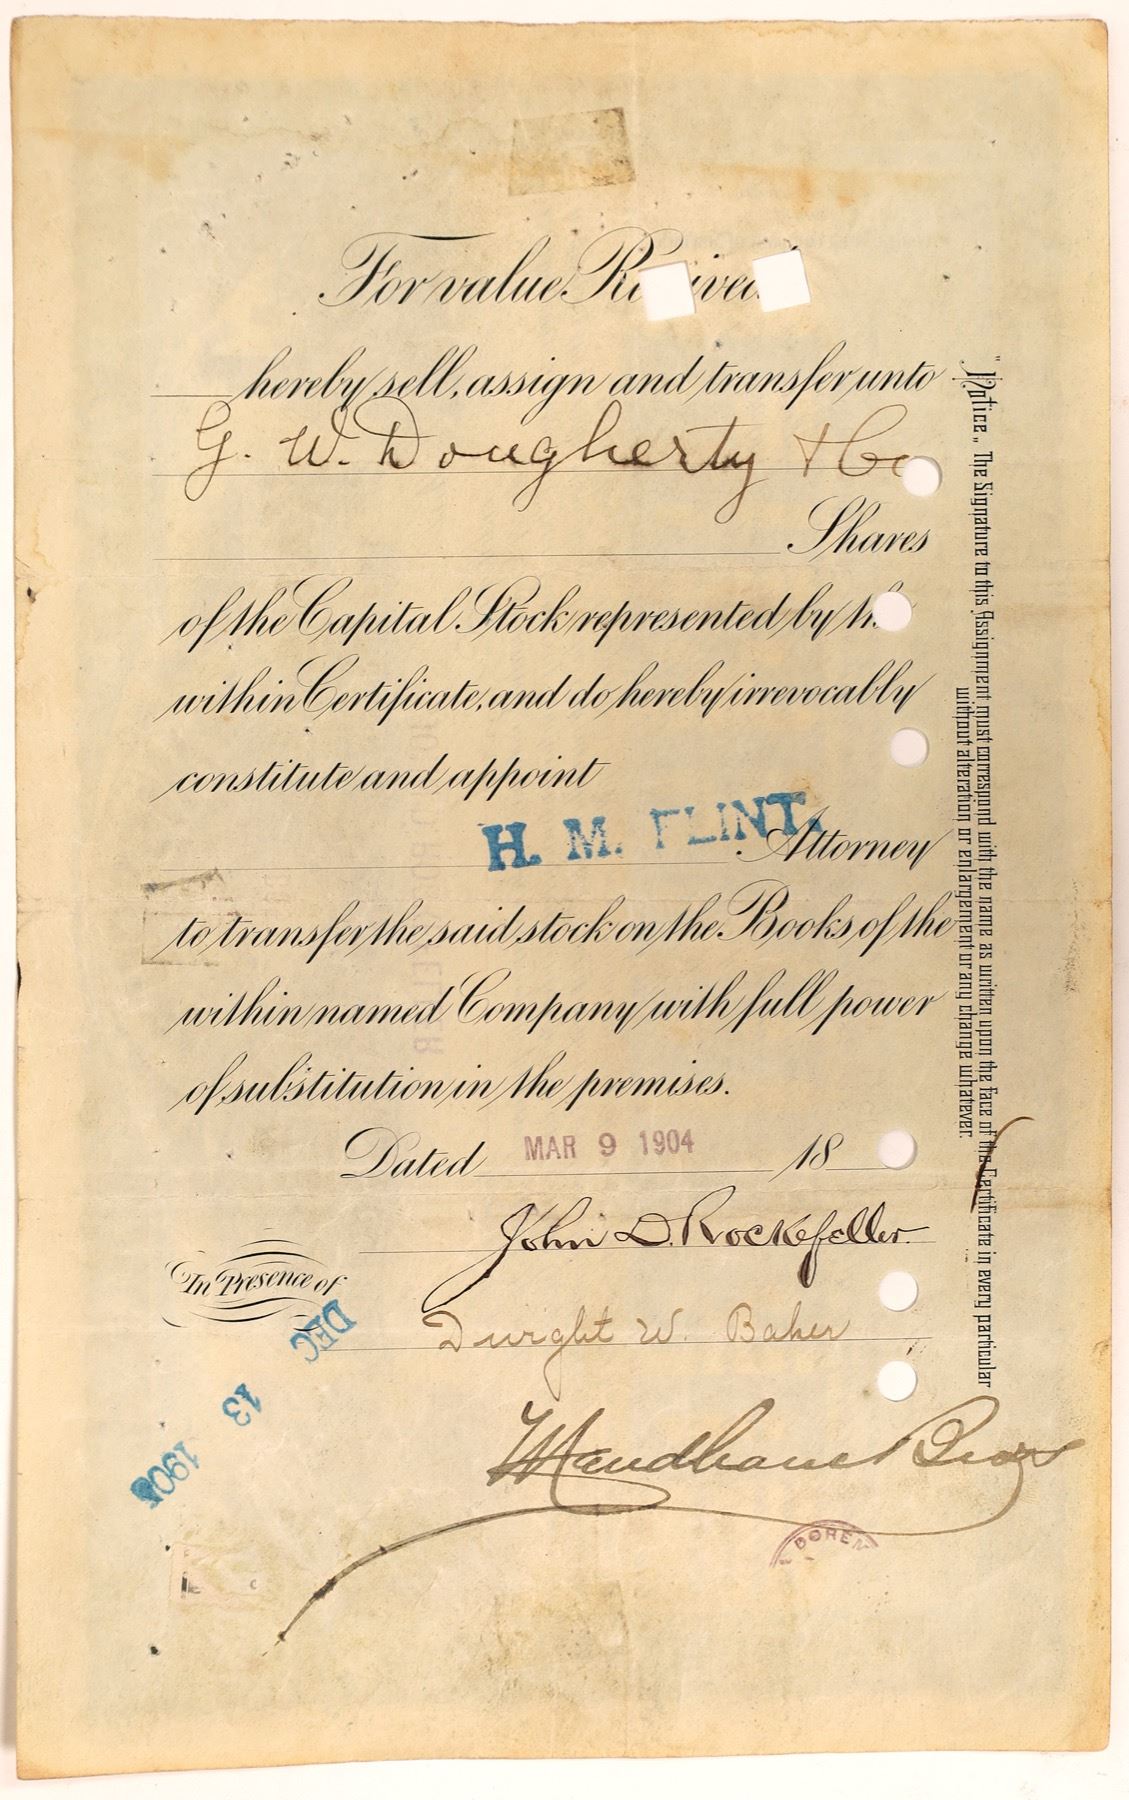 For value Received
hereby sell, assign and transfer unto
G. W. Dougherty & Co
Shares
of the Capital Stock represented by the
within Certificate, and do hereby irrevocably
constitute and appoint
H. M. FLINT.
Attorney
to transfer the said stock on the Books of the
within named Company with full power
of substitution in the premises.
Dated MAR 9 1904 18
John D. Rockefeller
In Presence of
Dwight W. Baker
DEC
13
Bros
DOREM
"Notice." The Signature to this Assignment must correspond with the name as written upon the face of the Certificate in every particular
without alteration or enlargement or any change whatever.